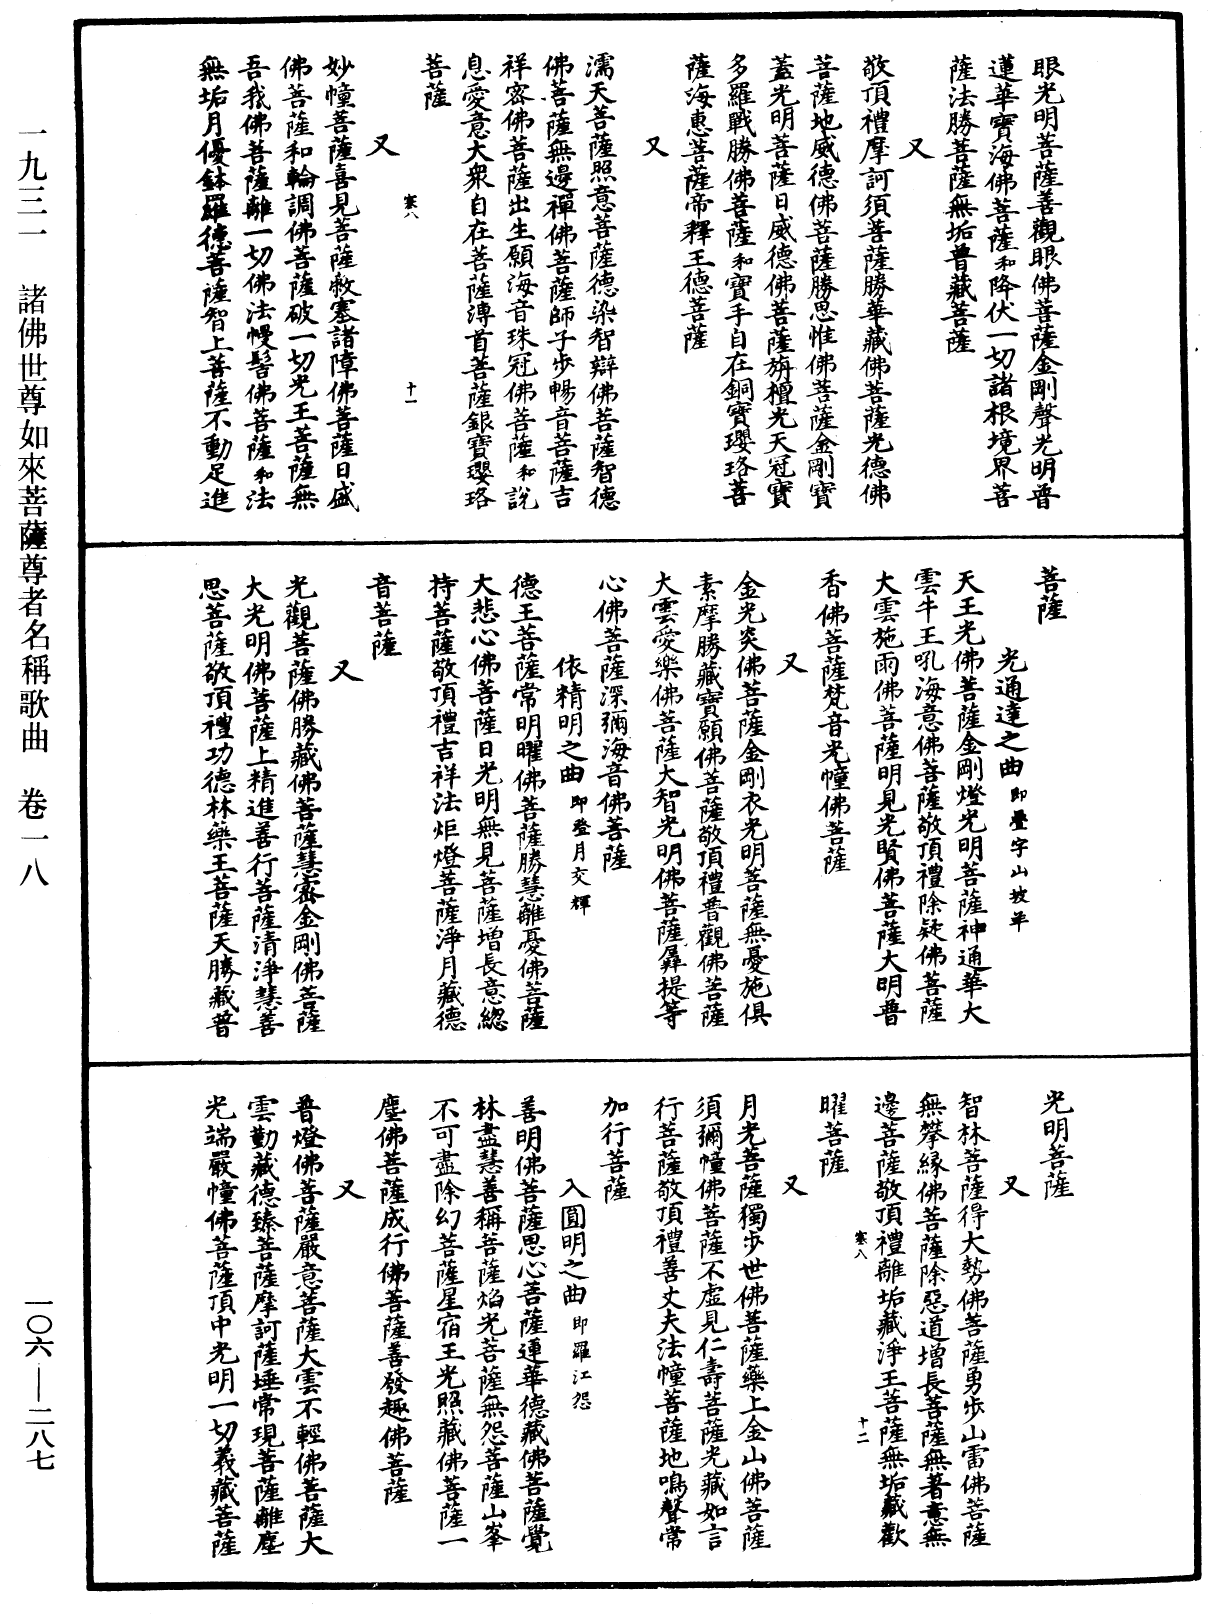 眼光明菩薩善觀眼佛菩薩金剛聲光明普
蓮華寶海佛菩薩和降伏一切諸根境界菩
薩法勝菩薩無垢普藏菩薩
又
敬頂禮摩訶須菩薩勝華藏佛菩薩光德佛
菩薩地威德佛菩薩勝思惟佛菩薩金剛寶
蓋光明菩薩日威德佛菩薩旃檀光天冠寶
多羅戰勝佛菩薩和寶手自在銅寶瓔珞菩
薩海惠菩薩帝釋王德菩薩
又
濡天菩薩照意菩薩德染智辯佛菩薩智德
佛菩薩無邊禪佛菩薩師子步暢音菩薩吉
祥密佛菩薩出生願海音珠冠佛菩薩和說
息愛意大衆自在菩薩溥首菩薩銀寶瓔珞
菩薩
寒八
十一
又
妙幢菩薩喜見菩薩救塞諸障佛菩薩日盛
佛菩薩和輪調佛菩薩破一切光王菩薩無
吾我佛菩薩離一切佛法幔髻佛菩薩和法
無垢月優鉢羅德菩薩智上菩薩不動足進
菩薩
光通達之曲 即疊字山坡羊
天王光佛菩薩金剛燈光明菩薩神通華大
雲牛王吼海意佛菩薩敬頂禮除疑佛菩薩
大雲施雨佛菩薩明見光賢佛菩薩大明普
香佛菩薩梵音光幢佛菩薩
又
金光炎佛菩薩金剛衣光明菩薩無憂施俱
素摩勝藏寶願佛菩薩敬頂禮普觀佛菩薩
大雲愛樂佛菩薩大智光明佛菩薩羼提等
心佛菩薩深彌海音佛菩薩
依精明之曲 即登月交輝
德王菩薩常明曜佛菩薩勝慧離憂佛菩薩
大悲心佛菩薩日光明無見菩薩增長意緫
持菩薩敬頂禮吉祥法炬燈菩薩淨月藏德
音菩薩
又
光觀菩薩佛勝藏佛菩薩慧密金剛佛菩薩
大光明佛菩薩上精進善行菩薩清淨慧善
思菩薩敬頂禮功德林藥王菩薩天勝藏普
光明菩薩
又
智林菩薩得大勢佛菩薩勇步山雷佛菩薩
無攀緣佛菩薩除惡道增長菩薩無著意無
邊菩薩敬頂禮離垢藏淨王菩薩無垢藏歡
曜菩薩
寒八
十二
又
月光菩薩獨步世佛菩薩藥上金山佛菩薩
須彌幢佛菩薩不虛見仁壽菩薩光藏如言
行菩薩敬頂禮善丈夫法幢菩薩地鳴聲常
加行菩薩
入圓明之曲 即羅江怨
善明佛菩薩思心菩薩蓮華德藏佛菩薩覺
林盡慧善稱菩薩焰光菩薩無怨菩薩山峯
不可盡除幻菩薩星宿王光照藏佛菩薩一
塵佛菩薩成行佛菩薩善發趣佛菩薩
又
普燈佛菩薩嚴意菩薩大雲不輕佛菩薩大
雲勤藏德臻菩薩摩訶薩埵常現菩薩離塵
光端嚴幢佛菩薩頂中光明一切義藏菩薩
一九三一 諸佛世尊如來菩薩尊者名稱歌曲 卷一八
一〇六—二八七